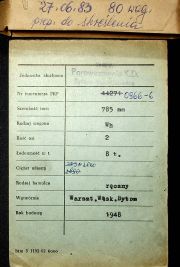 27.06.83 80 kg.
prp. do skreślenia
Jednostka służbowa
Parowozownia K.D.
Nr inwentarza PKP 44271 0966-6
Szerokość toru 785 mm
Rodzaj wagonu Wh
Ilość osi 2
Ładowność w t. 8 t.
Ciężar własny
Rodzaj hamulca ręczny
Wytwórnia Warszt.Wąsk.Bytom
Rok budowy 1948